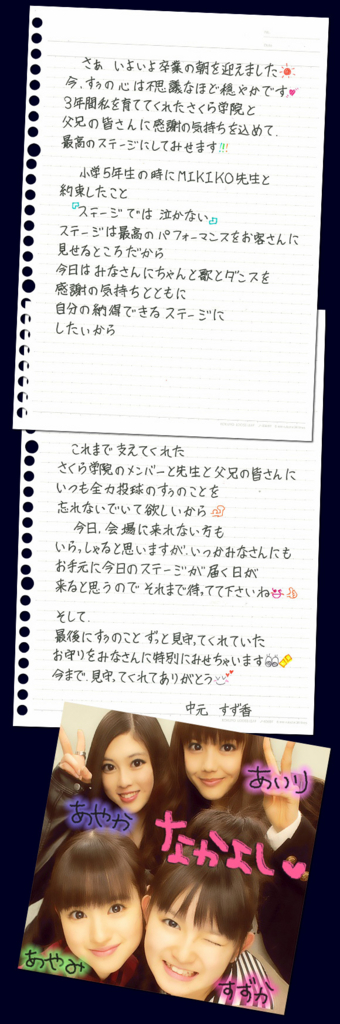 さぁ いよいよ卒業の朝を迎えました
今、すぅの心は不思議なほど穏やかです。
3年間私を育ててくれたさくら学院と
父兄の皆さんに感謝の気持ちを込めて、
最高のステージにしてみせます!!!
小学5年生の時にMIKIKO先生と
約束したこと
『ステージでは 泣かない』
ステージは最高のパフォーマンスをお客さんに
見せるところだから
今日はみなさんにちゃんと歌とダンスを
感謝の気持ちとともに
自分の納得できるステージに
したいから
これまで支えてくれた
さくら学院のメンバーと先生と父兄の皆さんに
いつも全力投球のすぅのことを
忘れないでいて欲しいから
今日、会場に来れない方も
いらっしゃると思いますが、いつかみなさんにも
お手元に今日のステージが届く日が
来ると思うので それまで待ってて下さいね
そして、
最後にすぅのこと ずっと見守ってくれていた
お守りをみなさんに特別にみせちゃいます
今まで、見守ってくれてありがとう
中元 すず香
あいり
あやか
なかよし
あやみ
すずか